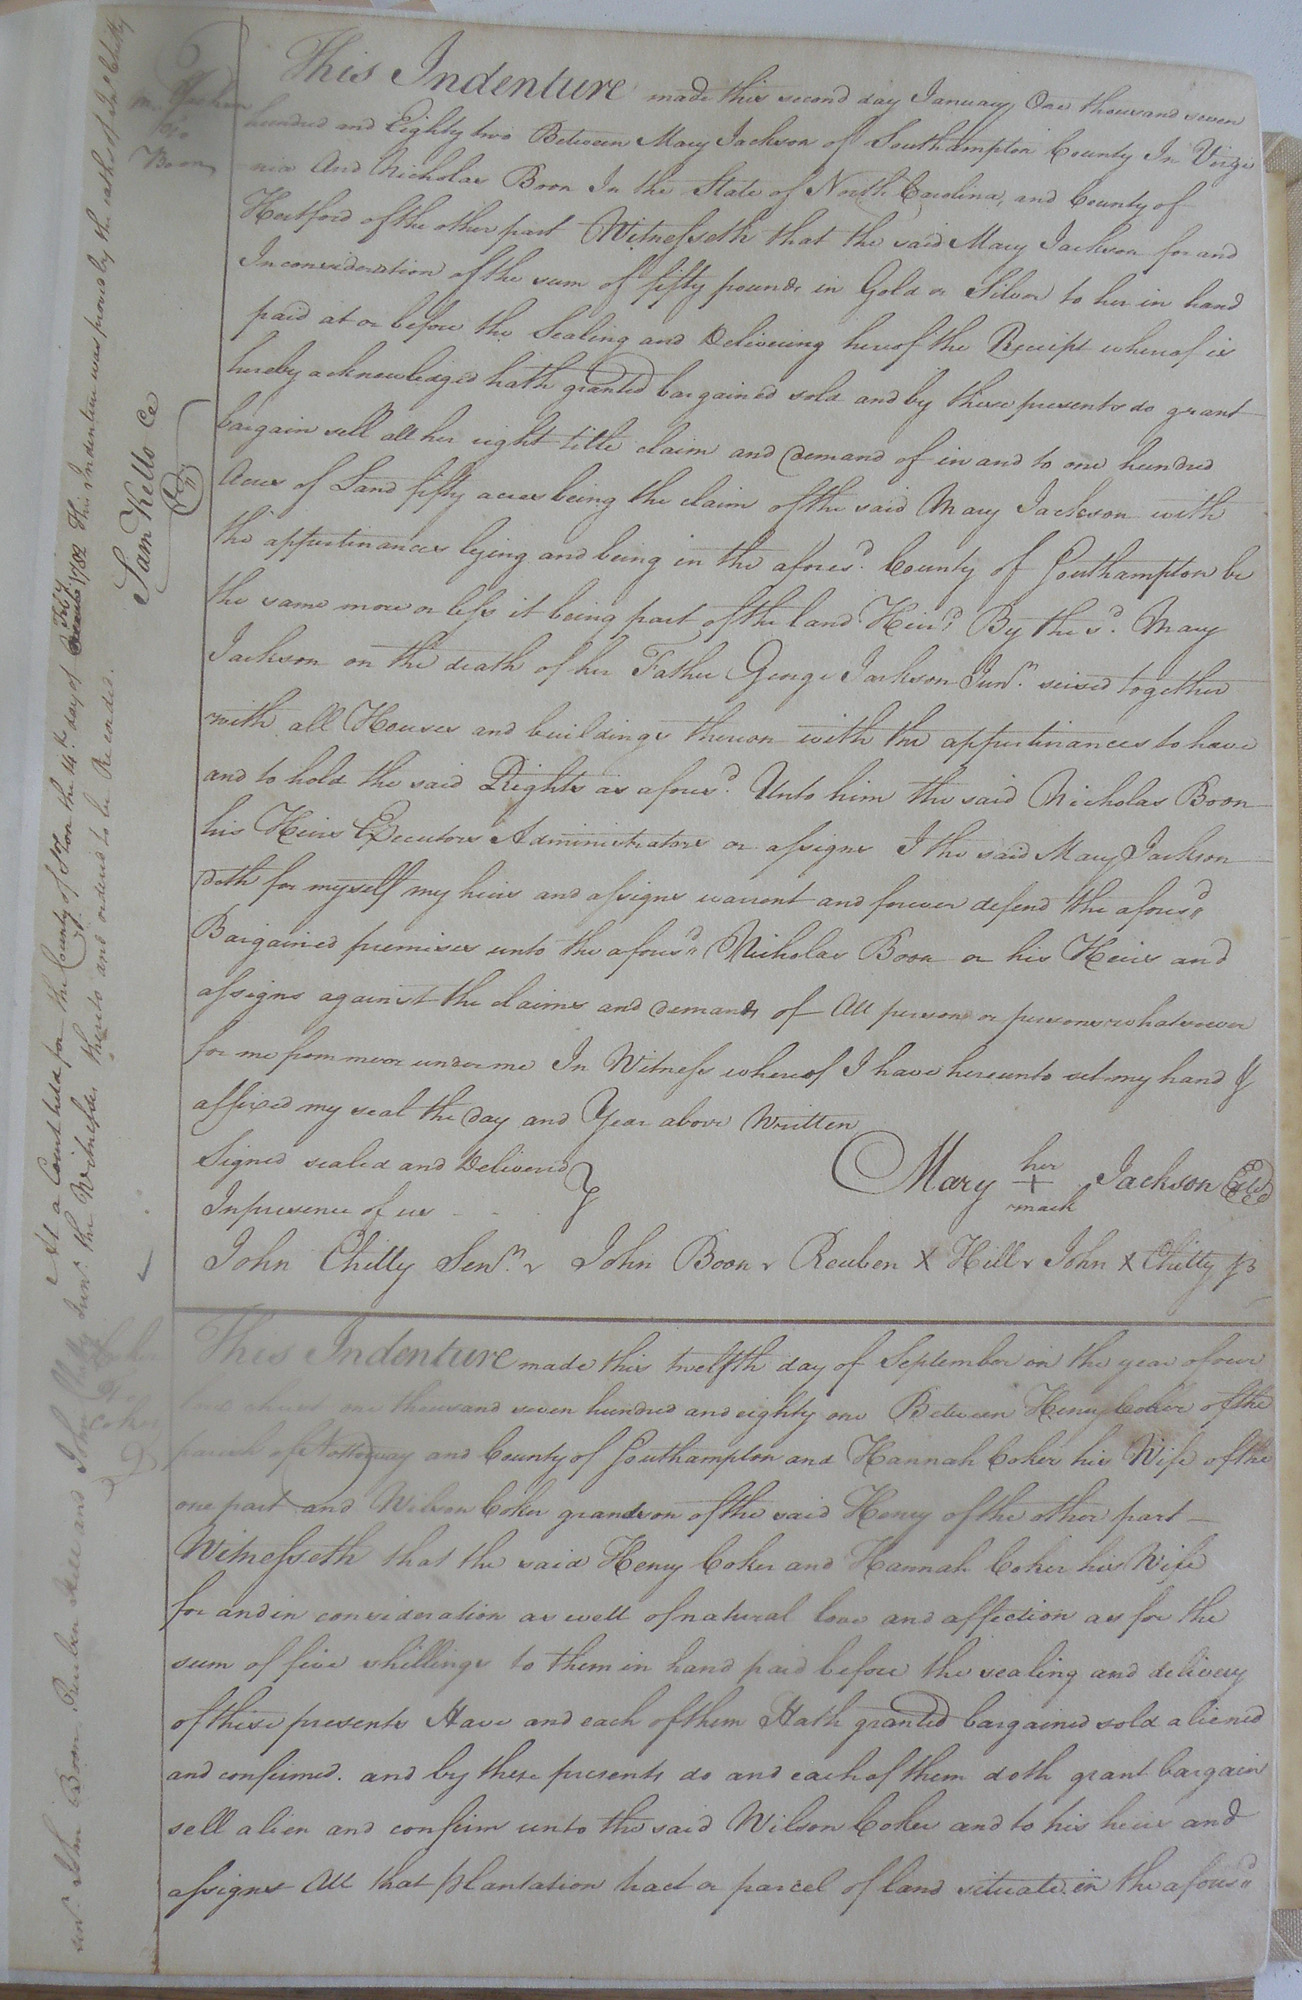 M. Jackson
to
Boon
This Indenture made this second day January One thousand seven
hundred and Eighty two Between Mary Jackson of Southampton County In Virgi
nia And Nicholas Boon In the State of North Carolina, and County of
Hertford of the other part Witnesseth that the said Mary Jackson for and
In consideration of the sum of fifty pounds in Gold or Silver to her in hand
paid at or before the Sealing and Delivering hereof the Receipt whereof is
hereby acknowledged hath granted bargained sold and by these presents do grant
bargain sell all her right title claim and demand of in and to one hundred
Acres of Land fifty acres being the claim of the said Mary Jackson with
the appurtinances lying and being in the afores.d County of Southampton be
the same more or less it being part of the land Heir'd By the s.d Mary
Jackson on the death of her Father George Jackson Jun.r seised together
with all Houses and buildings thereon with the appurtinances to have
and to hold the said Rights as afores.d Unto him the said Nicholas Boon
his Heirs Executors Administrators or assigns I the said Mary Jackson
doth for myself my heirs and assigns warrent and forever defend the afores.d
Bargained premises unto the afores.d Nicholas Boon or his Heirs and
assigns against the claims and demands of All person or persons whatsoever
for me from me or under me In Witness whereof I have hereunto set my hand &
affixed my seal the day and Year above Written
Signed sealed and Delivered }
In presence of us - - - }
Mary her + mark Jackson
John Chitty Sen.r John Boon Reuben X Hill John X Chitty Jr
At a Court held for the County of So.ton the 14.th day of December Feb.y 1782 This Indenture was proved by the oaths of Jn.o Chitty
sen.r John Boon Reuben Hill and John Chitty Jun.r the Witnesses thereto and ordered to be Recorded.
Sam Kello Cc
Coker
to
Coker
This Indenture made this twelfth day of September in the year of our
lord christ one thousand seven hundred and eighty one Between Henry Coker of the
parish of Nottoway and County of Southampton and Hannah Coker his Wife of the
one part and Wilson Coker grandson of the said Henry of the other part —
Witnesseth that the said Henry Coker and Hannah Coker his Wife
for and in consideration as well of natural love and affection as for the
sum of five shillings to them in hand paid before the sealing and delivery
of these presents Have and each of them Hath granted bargained sold aliened
and confirmed. and by these presents do and each of them doth grant bargain
sell alien and confirm unto the said Wilson Coker and to his heirs and
assigns All that plantation tract or parcel of land situate in the afores.d